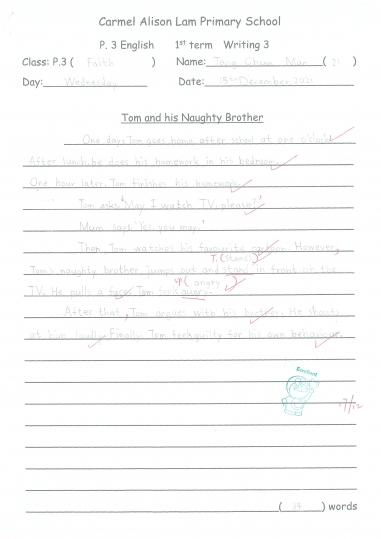 Carmel Alison Lam Primary School
P. 3 English 1st term Writing 3
Class: P.3 ( Faith ) Name: Tong Chun Man ( 21 )
Day: Wednesday Date: 15th December, 2021
Tom and his Naughty Brother
One day, Tom goes home after school at one o'clock.
After lunch, he does his homework in his bedroom.
One hour later, Tom finishes his homework.
Tom asks, 'May I watch TV, please?'
Mum says, 'Yes, you may.'
Then, Tom watches his favourite cartoon. However,
T. (stands)
Tom's naughty brother jumps out and stand in front of the
sp ( angry )
TV. He pulls a face. Tom feels
After that, Tom argues with his brother. He shouts
at him loudly. Finally, Tom feels guilty for his own behaviour.
Excellent
/12
( ) words